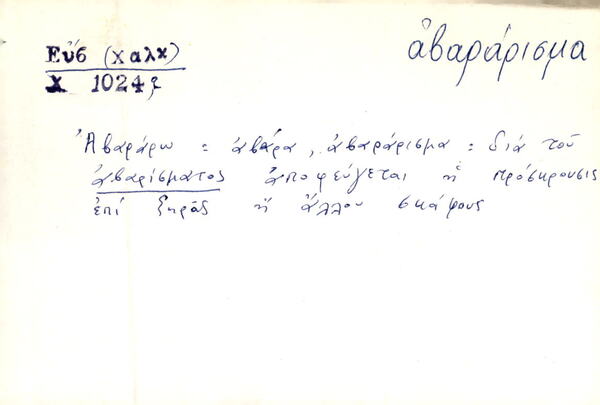 ἀβαράρισμα
Εὐδ (χαλκ)
χ 1024ζ
Ἀβαράρω = ἀβάρα, ἀβαράρισμα = διὰ τοῦ
ἀβαρίσματος ἀποφεύγεται ἡ πρόσκρουσις
ἐπὶ ξηρᾶς ἢ ἄλλου σκάφους